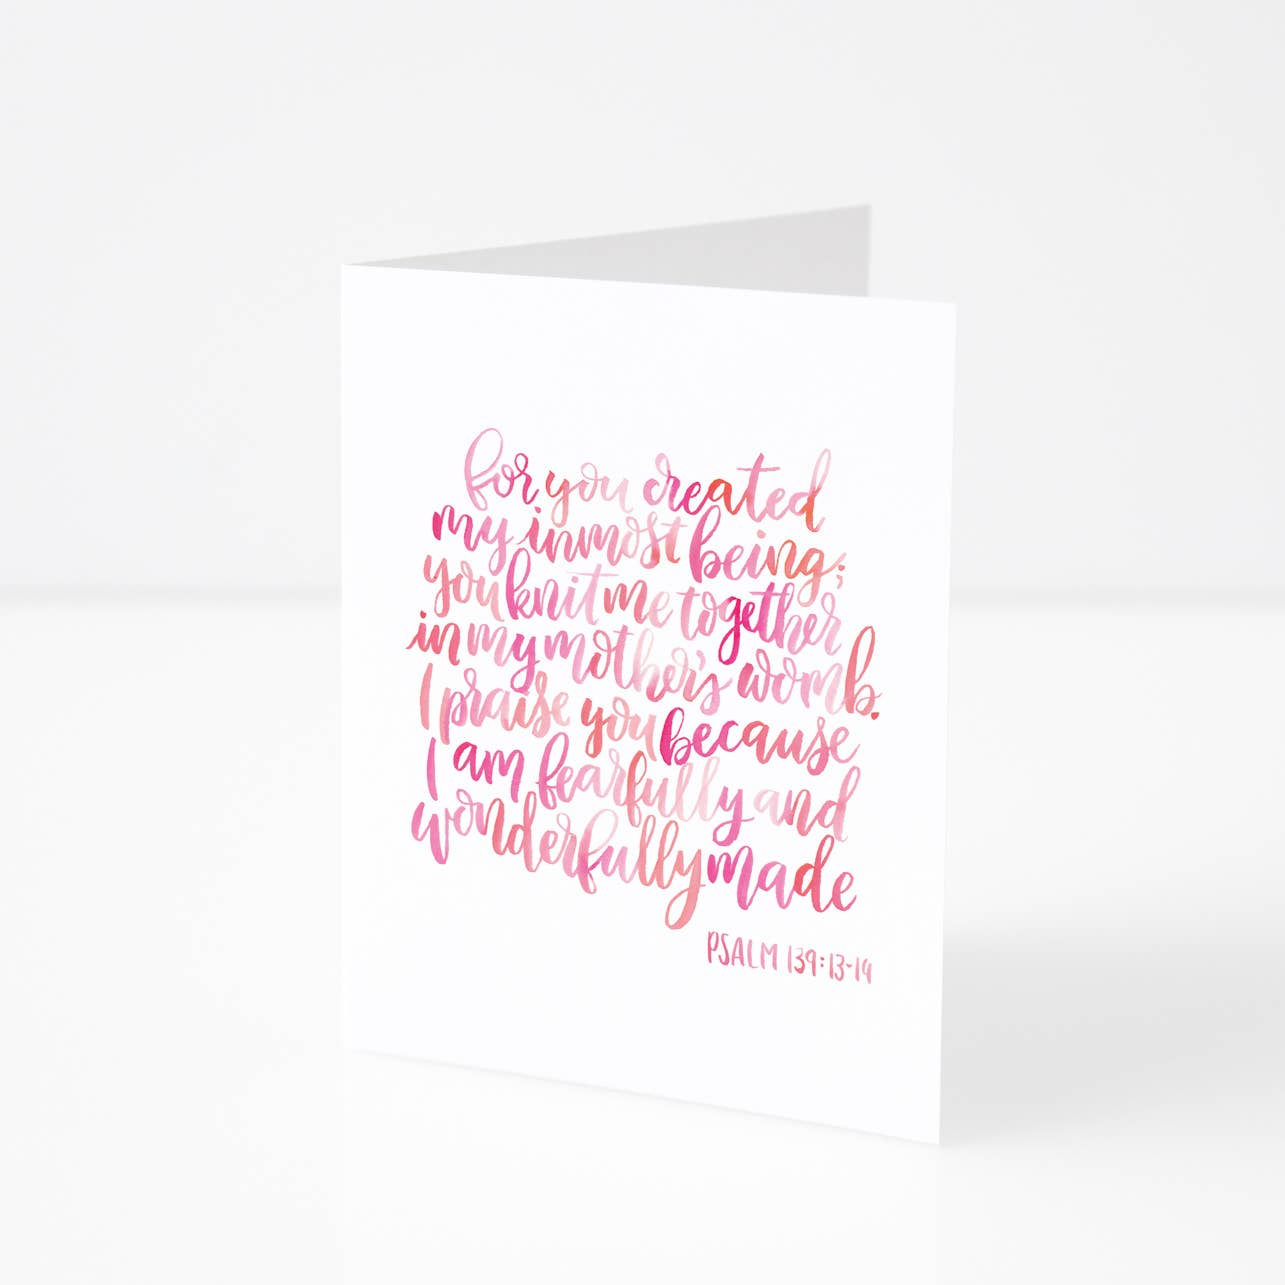 for you created
my inmost being;
you knit me together
in my mother's womb.
I praise you because
I am fearfully and
wonderfully made
PSALM 139:13-14